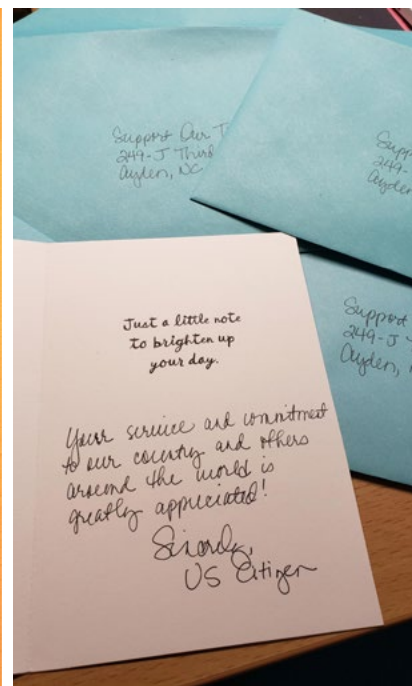 Support Our T
249-J Third
Ayden, NC
Supp
249-
Ayden
Support
249-J
Ayden,
Just a little note
to brighten up
your day.
Your service and commitment
to our country and others
around the world is
greatly appreciated!
Sincerely,
US Citizen